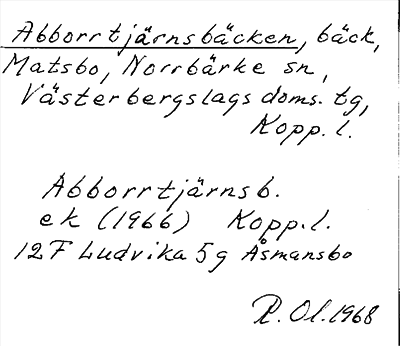 Abborrtjärnsbäcken, bäck,
Matsbo, Norrbärke sn,
Västerbergslags doms. tg,
Kopp. l.
Abborrtjärnsb.
ek (1966) Kopp. l.
12F Ludvika 5g Åsmansbo
R. Ol. 1968